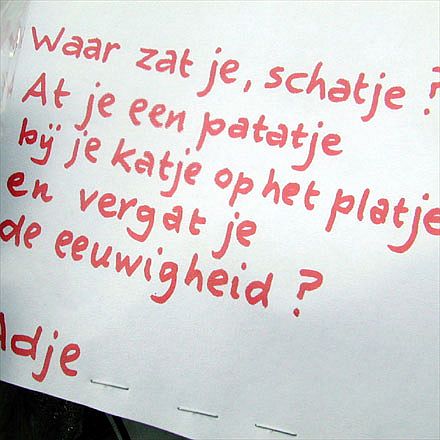 Waar zat je, schatje?
At je een patatje
bij je katje op het platje
en vergat je
de eeuwigheid?
Adje